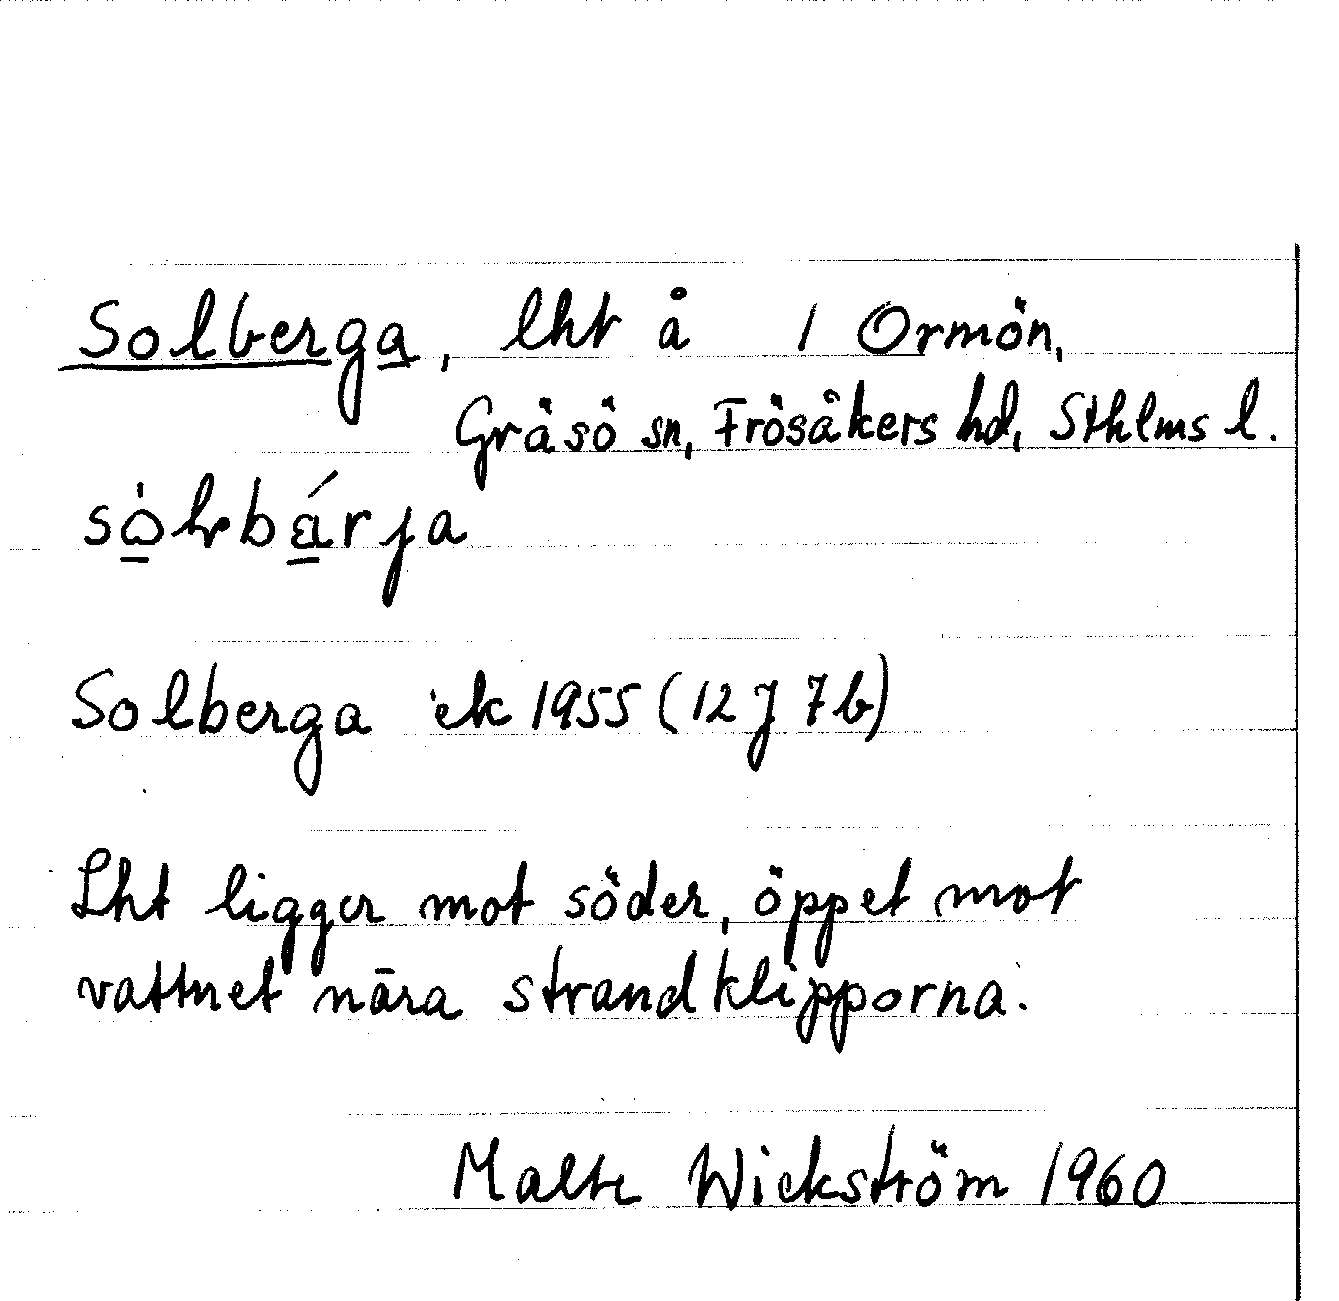 Solberga, lht å 1 Ormön,
Gräsö sn, Frösåkers hd, Sthlms l.
Solberga ek 1955 (12 J 7 b)
Lht ligger mot söder, öppet mot
vattnet nära strandklipporna.
Malte Wickström 1960